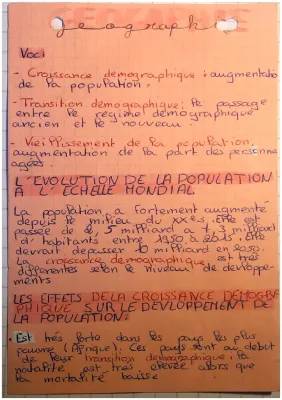 Geographi
Voci
- Croissance demographique : augmentatio
de la population.
- Transition demographique : le passage
entre le regime demographique
ancien et le nouveau.
- Vieillissement de la population,
augmentation de la part des personne
agées.
L'EVOLUTION DE LA POPULATION
A L'ECHELLE MONDIAL
La population a fortement augmenté
depuis le milieu du XXe s. Elle est
passée de 2,5 milliard a 7,3 milliard
d'habitants entre 1950 à 2015. Elle
devrait depasser 10 milliard en 2050.
La croissance demographique est trés
differentes selon le niveau de devloppe-
ments
LES EFFETS DE LA CROISSANCE DEMOGRA
PHIQUE SUR LE DEVLOPPEMENT DE
LA POPULATION:
• Est trés forte dans les pays les plus
pauvre (Afrique). Ces pays sont au début
de leur transition demographique : la
natalité est trés elevée alors que
la mortalité baisse